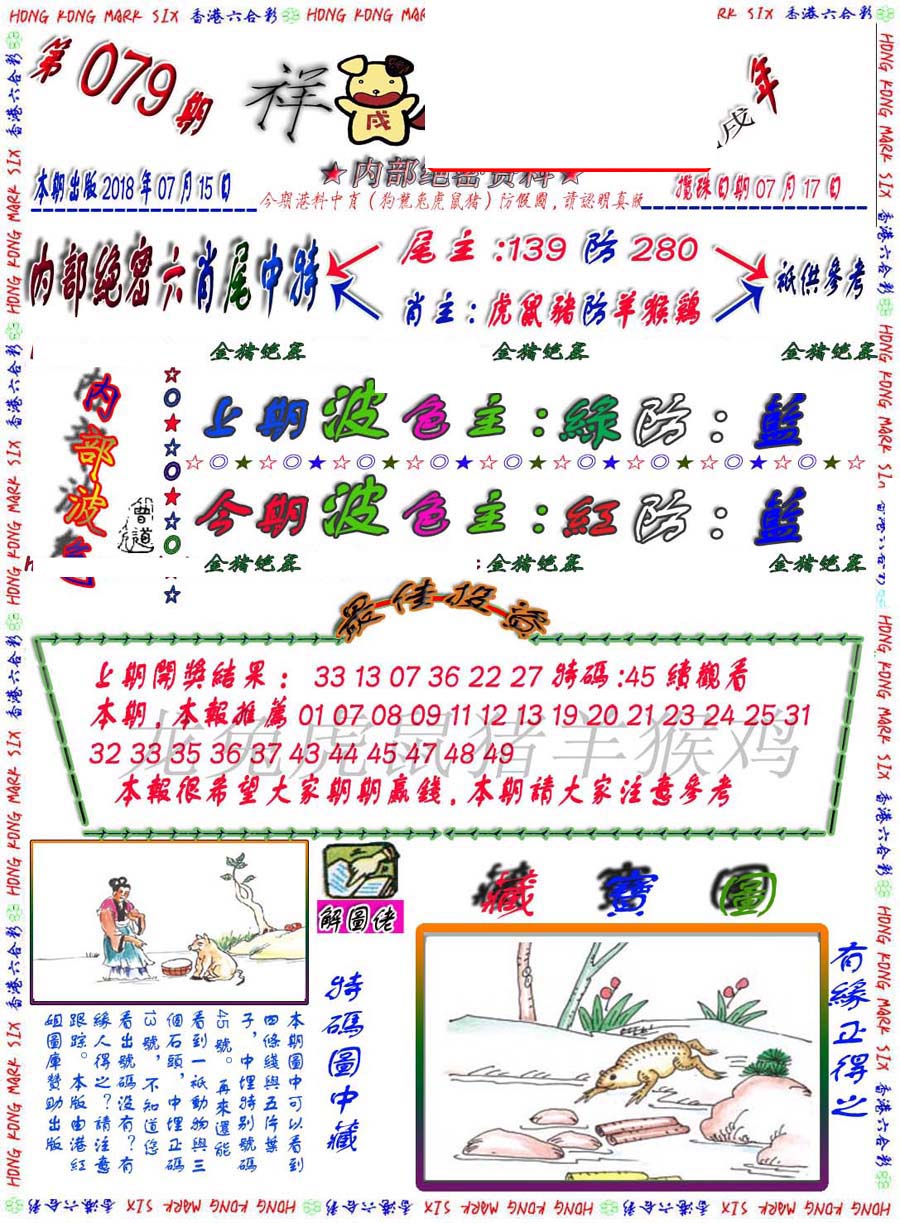 HONG KONG MARK SIX 香港六合彩 HONG KONG MARK
RK SIX 香港六合彩
第079期
祥
戌
戌年
★内部绝密资料★
本期出版2018年07月15日
今期港料中肖(狗龍兔虎鼠猪)防假圖,請認明真版
攬珠日期07月17日
内部绝密六肖尾中特
尾主:139 防 280
肖主:虎鼠豬防羊猴鷄
祇供參考
金猪绝密 金猪绝密 金猪绝密
内部波
上期波色主:綠防:藍
今期波色主:紅防:藍
曾道
金猪绝密 金猪绝密 金猪绝密
最佳投
上期開獎結果: 33 13 07 36 22 27 特碼:45 續觀看
本期,本報推薦 01 07 08 09 11 12 13 19 20 21 23 24 25 31
32 33 35 36 37 43 44 45 47 48 49
龙兔虎鼠猪羊猴鸡
本報很希望大家期期贏錢,本期請大家注意參考
解圖佬
藏寶圖
特碼圖中藏
有緣正得之
本期圖中可以看到
四條綫與五片葉
子,中埋特別號碼
45號。再來還能
看到一祇動物與三
個石頭,中埋正碼
13號,不知道您
看出號碼没有?有
緣人得之?請注意
跟踪。本版由港紅
姐圖庫贊助出版
HONG KONG MARK SIX 香港六合彩